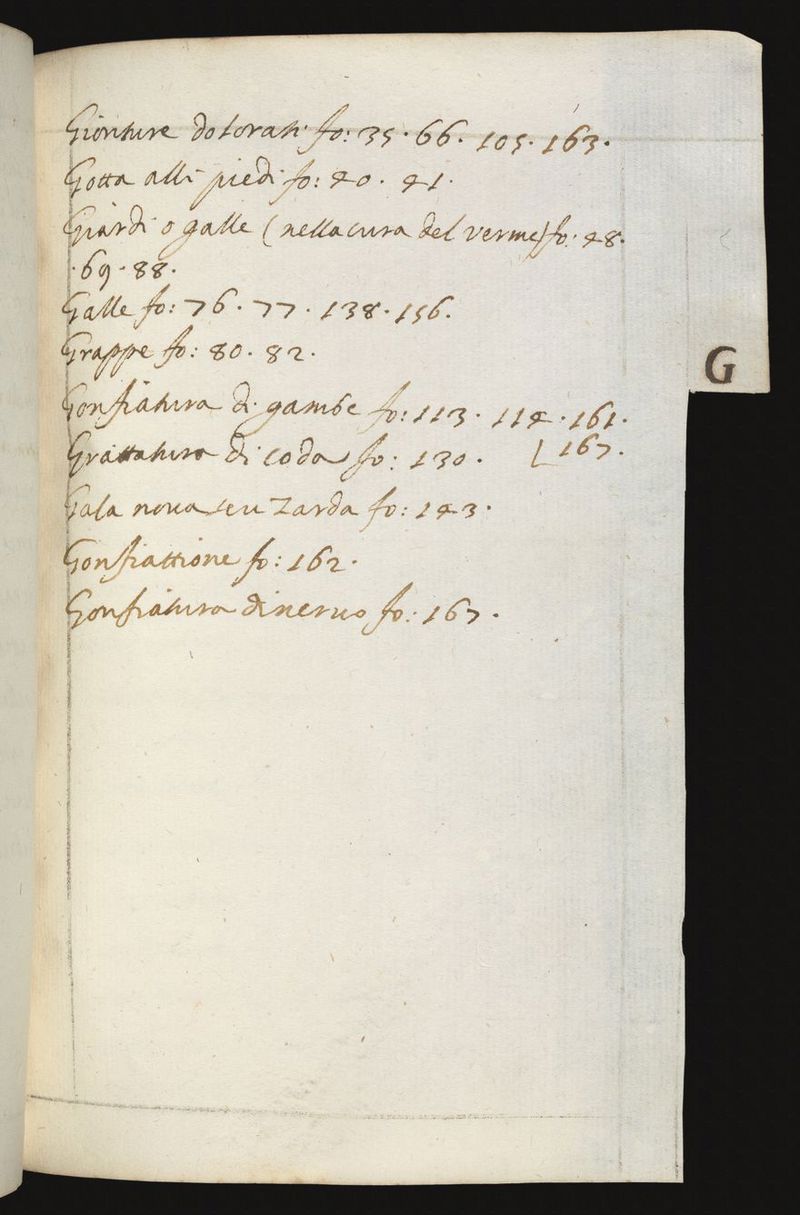 Gionture dolorati fo: 35 · 66 · 105 · 163 ·
Gotta alli piedi fo: 40 · 41 ·
Giardi o galle (nella cura del verme) fo: 48 ·
· 69 · 88 ·
Galle fo: 76 · 77 · 138 · 156 .
Grappe fo: 80 · 82 ·
G
Gonfiatura di gambe fo: 113 · 114 · 161 ·
Grattatura di coda fo: 130 · 167 .
Gala noua seu Zarda fo: 143 ·
Gonfiattione fo: 162 ·
Gonfiatura di neruo fo: 167 ·